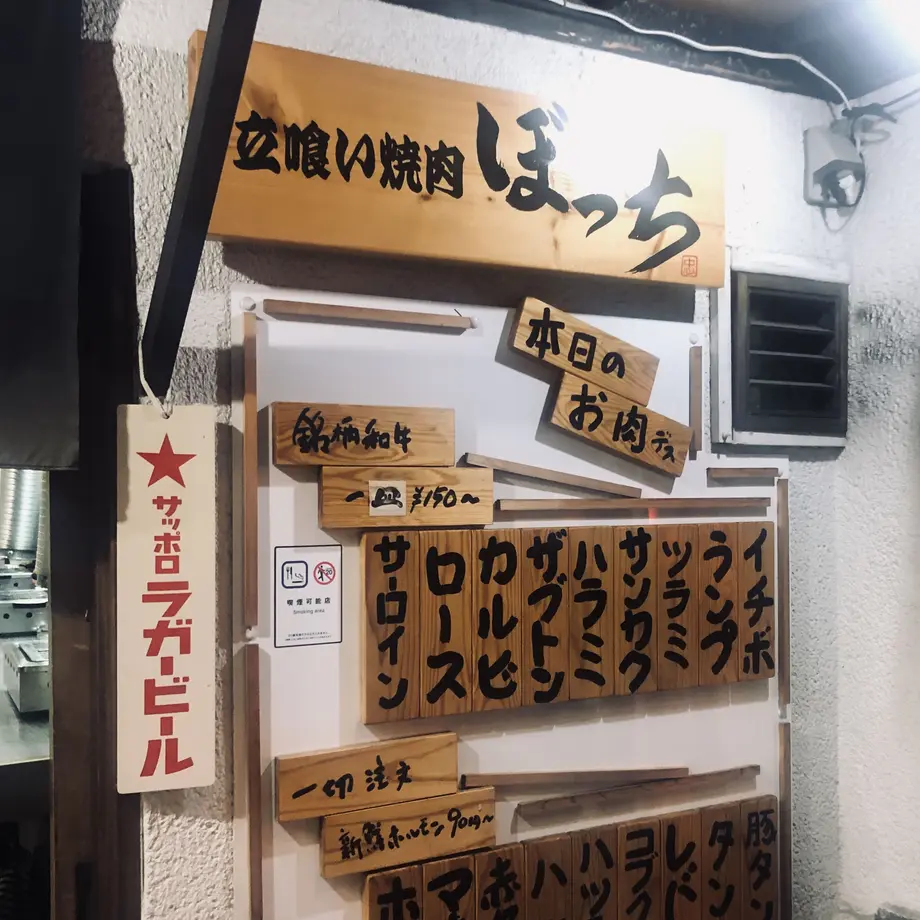 立喰い焼肉 ぼっち
本日の
お肉デス
銘柄和牛
一皿 ¥150～
イチボ
ランプ
ツラミ
サンカク
ハラミ
ザブトン
カルビ
ロース
サーロイン
喫煙可能店
Smoking area
20
★サッポロラガービール
一切注文
新鮮ホルモン90円～
豚タン
タン
レバ
コブク
ハツ
ハ
赤
マ
ホ